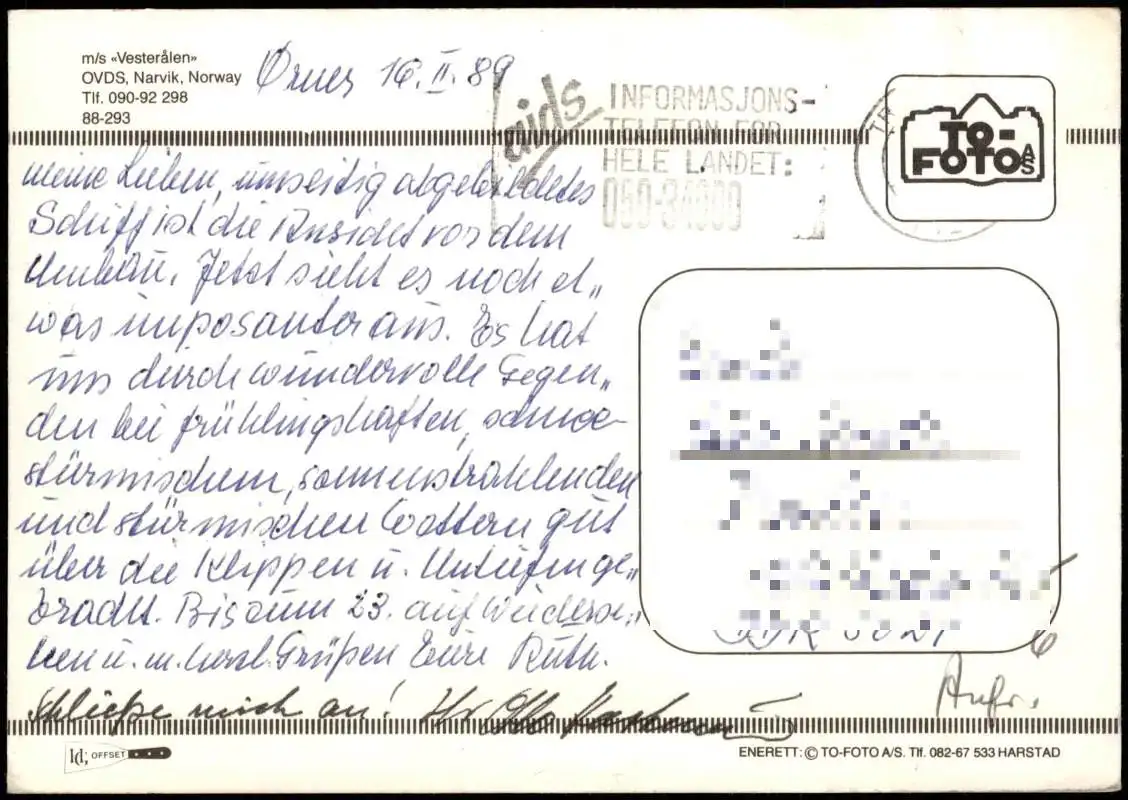 m/s «Vesterålen»
OVDS, Narvik, Norway
Tlf. 090-92 298
88-293
Ørnes 16.II.89
aids
INFORMASJONS-
TELEFON FOR
HELE LANDET:
050-34000
TO-
FOTO AS
meine Lieben, umseitig abgebildetes
Schiff ist die Ansicht vor dem
Umbau. Jetzt sieht es noch et„
was imposanter aus. Es hat
uns durch wundervolle Gegen„
den bei frühlingshaften, schnee-
stürmischem, sonnenstrahlenden
und stürmischen Wettern gut
über die Klippen u. Untiefen ge„
bracht. Bis zum 23. auf Wiederse„
hen u. m. herzl. Grüßen Eure Ruth.
Schließe mich an! Ihr Otto
Anfr.
6
ld; OFFSET
ENERETT: © TO-FOTO A/S. Tlf. 082-67 533 HARSTAD